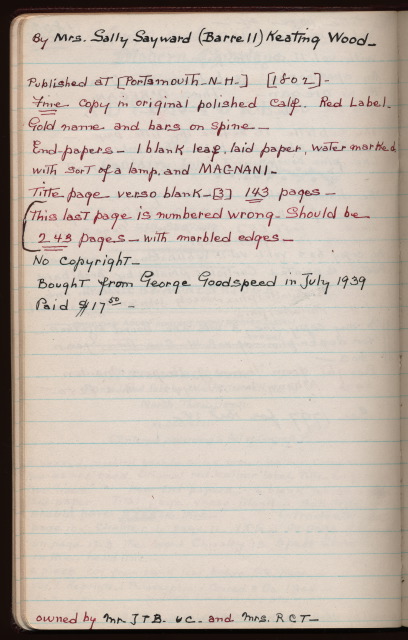 By Mrs. Sally Sayward (Barrell) Keating Wood_
Published at [Portsmouth_N.H._] [1802]_
Fine copy in original polished calf. Red Label.
Gold name and bars on spine_
End-papers_ 1 blank leaf, laid paper, water marked
with sort of a lamp, and MAGNANI_
Title-page verso blank_[3] 143 pages_
(This last page is numbered wrong_ Should be
243 pages_ with marbled edges_
No copyright_
Bought from George Goodspeed in July 1939
Paid $17.50_
owned by Mr. JTB. and Mrs. RCT_